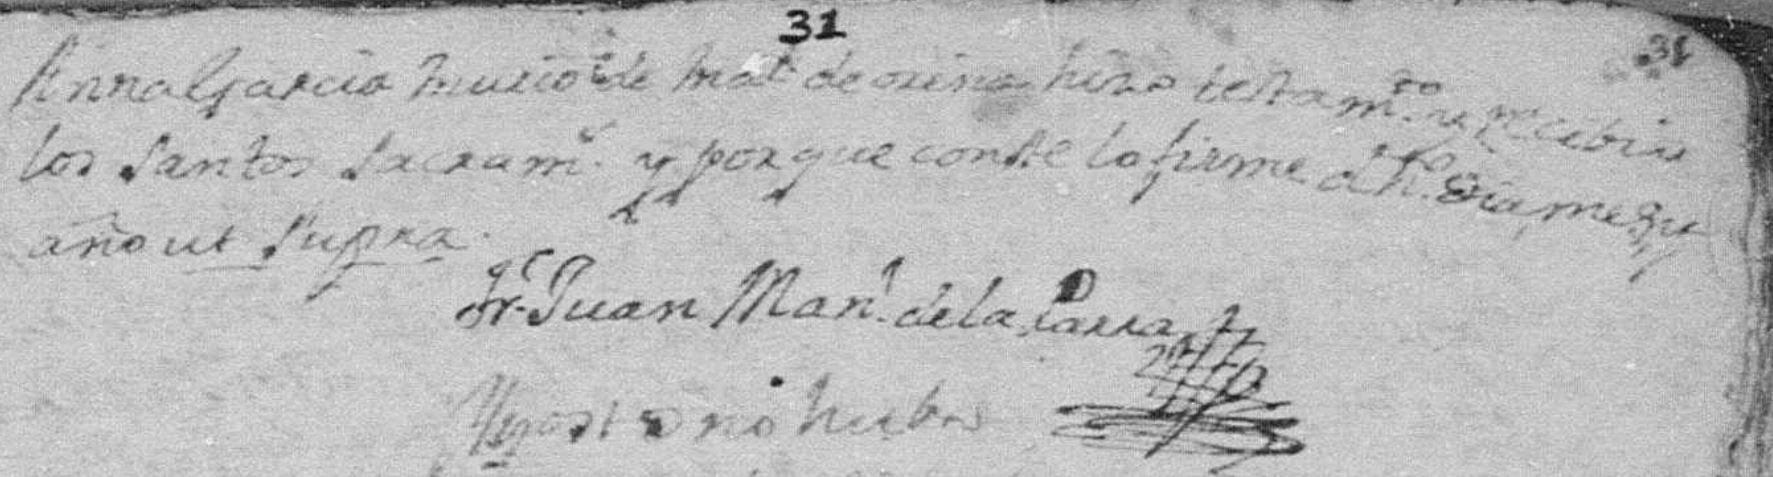 31
31
Anna Garcia murio de mal de orina hizo testam.to y recibio
los Santos Sacram.s y porque conste lo firme dho. dia, mes, y
año ut supra.
Fr. Juan Man.l de la Parra
Agosto no hubo